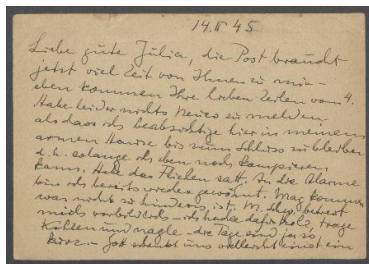 14.II 45
Liebe gute Julia, die Post braucht
jetzt viel Zeit von Ihnen zu mir –
eben kommen Ihre lieben Zeilen vom 4.
Habe leider nichts Neues zu melden
als dass ich beabsichtige hier in meinem
armen Hause bis zum Schluss zu bleiben
d. h. solange ich eben noch kampieren
kann. Habe das Fliehen satt. An die Alarme
bin ich bereits wieder gewöhnt. Mag kommen
was nicht zu hindern ist. betreut
mich vorbildlich – ich hacke dafür Holz, trage
Kohlen und nagle – die Tage sind ja so
kurz – Gott schenkt uns vielleicht einst ein